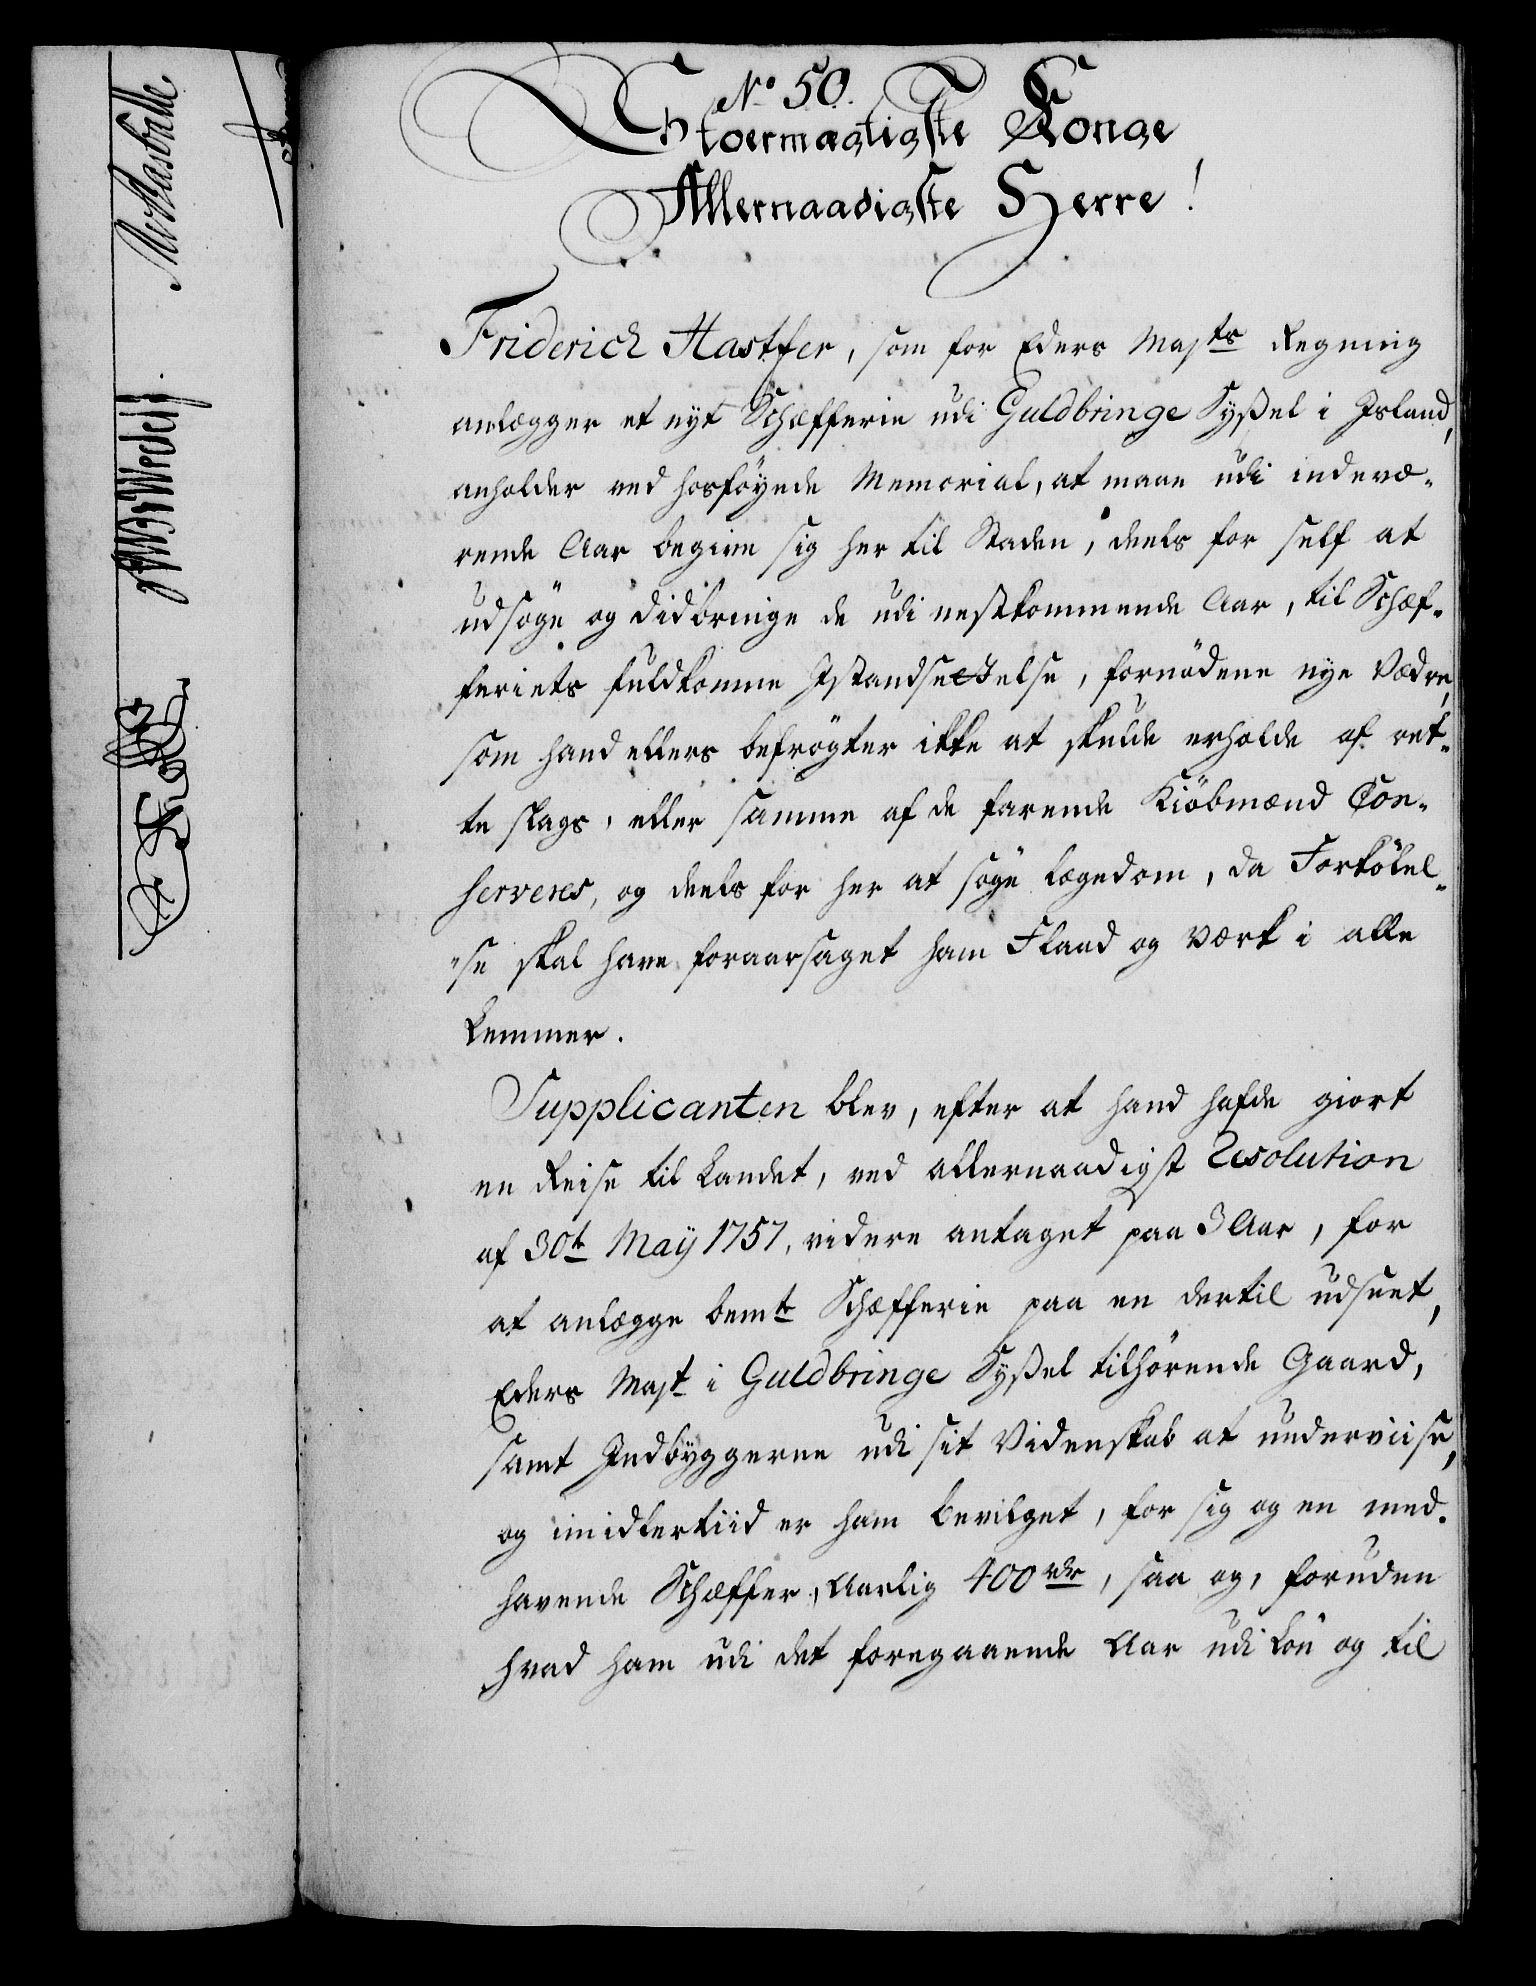 No 50.
Stoermægtigste Konge
Allernaadigste Herre!
Friderich Hastfer, som for Eders Majts Regning
anlægger et nyt Schæfferie udi Guldbringe Syßel i Island,
anholder ved hosföyede Memorial, at maae udi indevæ-
rende Aar begive sig her til Staden, deels for self at
udsöge og didbringe de udi nestkommende Aar, til Schæf-
feriets fuldkomne Istandsættelse, fornödene nye Vædre,
som hand ellers befrögter ikke at skulde erholde af ret-
te slags, eller samme af de farende Kiöbmænd Con-
serveres, og deels for her at söge lægedom, da Forkölel-
"se skal have foraarsaget ham Flaad og Værk i alle
Lemmer.
Supplicanten blev, efter at hand hafde giort
en Reise til Landet, ved allernaadigst Resolution
af 30t May 1757, videre antaget paa 3 Aar, for
at anlægge bemte Schæfferie paa en dertil udseet,
Eders Majt i Guldbringe Syßel tilhörende Gaard,
samt Indbyggerne udi sit Videnskab at underviise,
og imidlertiid er ham bevilget, for sig og en med-
havende Schæffer, Aarlig 400 rdr, saa og, foruden
hvad ham udi det foregaaende Aar udi Lön og til